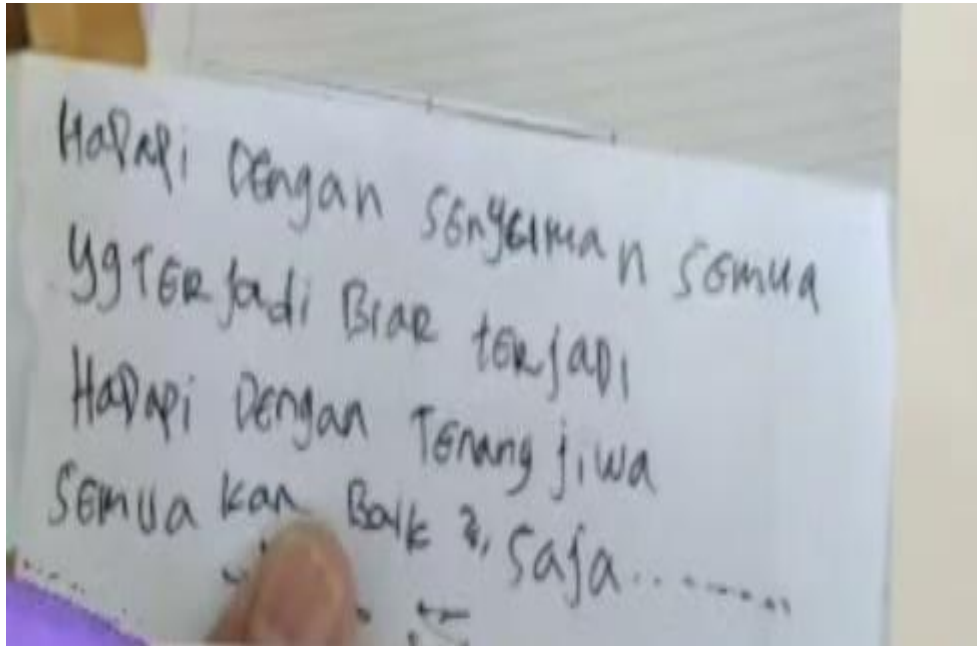 HaDapi DEngan SEnyuman SEmua
yg TERjadi BiaR tERjaDi
HaDapi DEngan TEnang jiwa
SEmua kan Baik 2, Saja.........